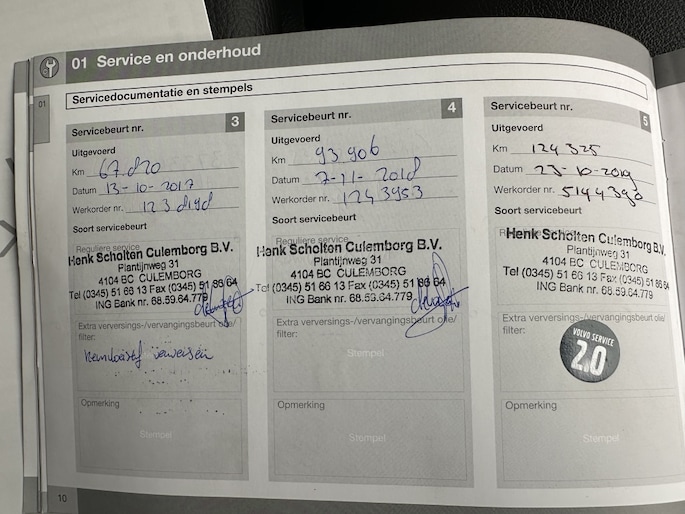 01 Service en onderhoud
01
Servicedocumentatie en stempels
Servicebeurt nr. 3
Uitgevoerd
Km
Datum 13-10-2017
Werkorder nr.
Soort servicebeurt
Reguliere service
Henk Scholten Culemborg B.V.
Plantijnweg 31
4104 BC CULEMBORG
Tel (0345) 51 66 13 Fax (0345) 51 86 64
ING Bank nr. 68.59.64.779
Extra verversings-/vervangingsbeurt olie/
filter:
Opmerking
Stempel
Servicebeurt nr. 4
Uitgevoerd
Km 93 906
Datum 7-11-2018
Werkorder nr. 1243953
Soort servicebeurt
Reguliere service
Henk Scholten Culemborg B.V.
Plantijnweg 31
4104 BC CULEMBORG
Tel (0345) 51 66 13 Fax (0345) 51 86 64
ING Bank nr. 68.59.64.779
Extra verversings-/vervangingsbeurt olie/
filter:
Stempel
Opmerking
Stempel
Servicebeurt nr. 5
Uitgevoerd
Km 124 325
Datum 23-10-2019
Werkorder nr. 5144390
Soort servicebeurt
Henk Scholten Culemborg B.V.
Plantijnweg 31
4104 BC CULEMBORG
Tel (0345) 51 66 13 Fax (0345) 51 86 64
ING Bank nr. 68.59.64.779
Extra verversings-/vervangingsbeurt olie/
filter:
VOLVO SERVICE
2.0
Opmerking
Stempel
10